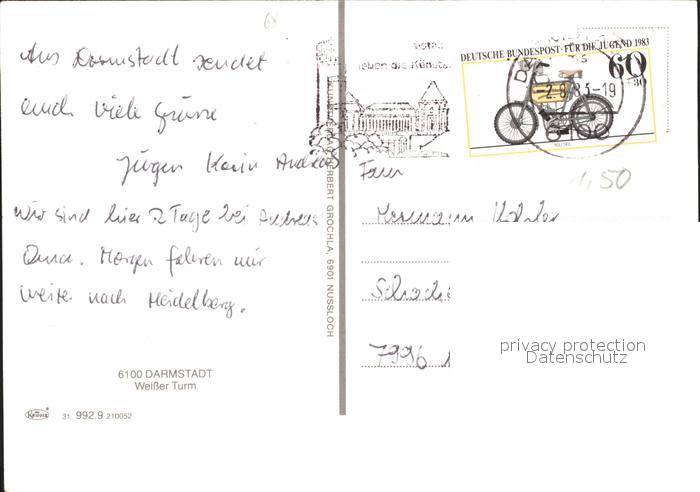 Aus Darmstadt sendet
euch viele Grüsse
Jürgen Karin Andreas
Wir sind hier 2 Tage bei Andreas
Oma. Morgen fahren wir
weiter nach Heidelberg.
6100 DARMSTADT
Weißer Turm
Krüger
31 992.9 210052
HERBERT GROCHLA, 6901 NUSSLOCH
leben die Künste
DEUTSCHE BUNDESPOST · FÜR DIE JUGEND 1983
60
+30
-2.8.83-19
6100
1,50
Fam
Hermann
7996
privacy protection
Datenschutz